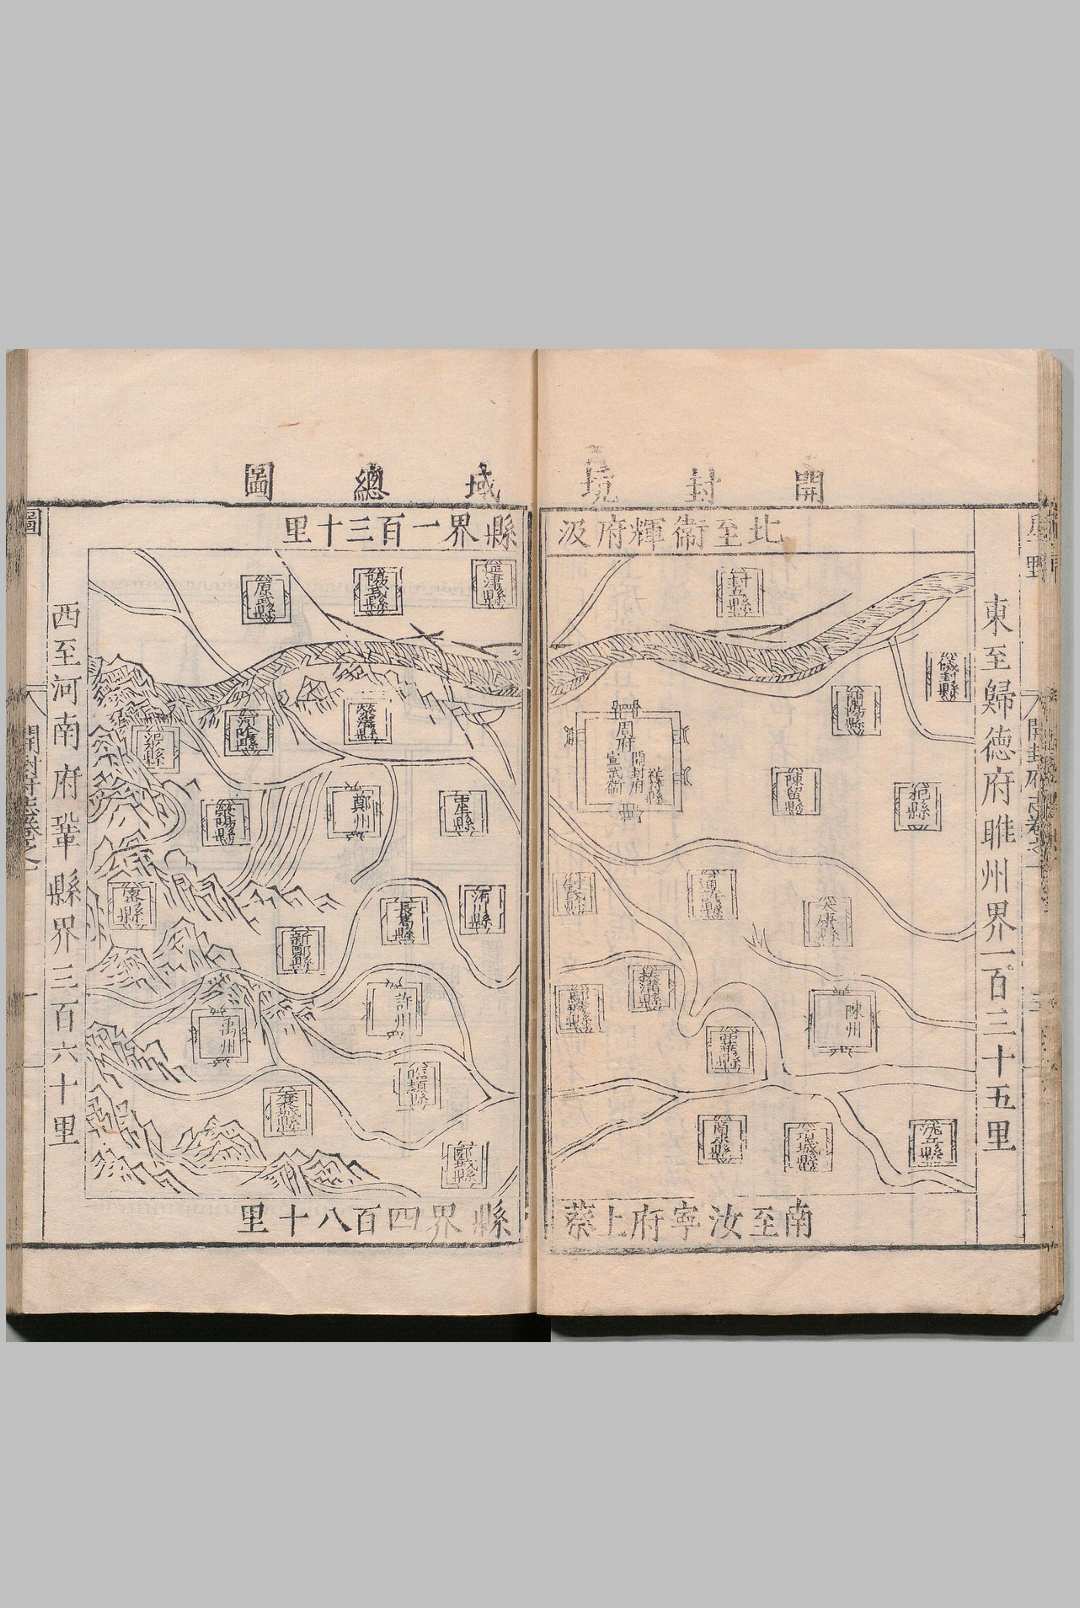 開封境域總圖
北至衛輝府汲縣界一百三十里
東至歸德府睢州界一百三十五里
南至汝寧府上蔡縣界四百八十里
西至河南府鞏縣界三百六十里
星野
開封府志卷之一
封丘縣
儀封縣
蘭陽縣
周府
開封府
宣武衛
祥符縣
陳留縣
杞縣
通許縣
太康縣
扶溝縣
鄢陵縣
陳州
西華縣
商水縣
項城縣
沈丘縣
延津縣
陽武縣
原武縣
滎澤縣
河陰縣
汜縣
鄭州
中牟縣
滎陽縣
洧川縣
長葛縣
新鄭縣
密縣
許州
禹州
臨潁縣
襄城縣
郾城縣
圖
開封府志卷之一